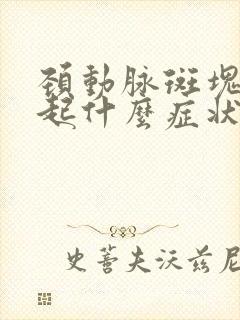 頸動脉斑塊
起什麼症狀
史蒂夫沃兹尼